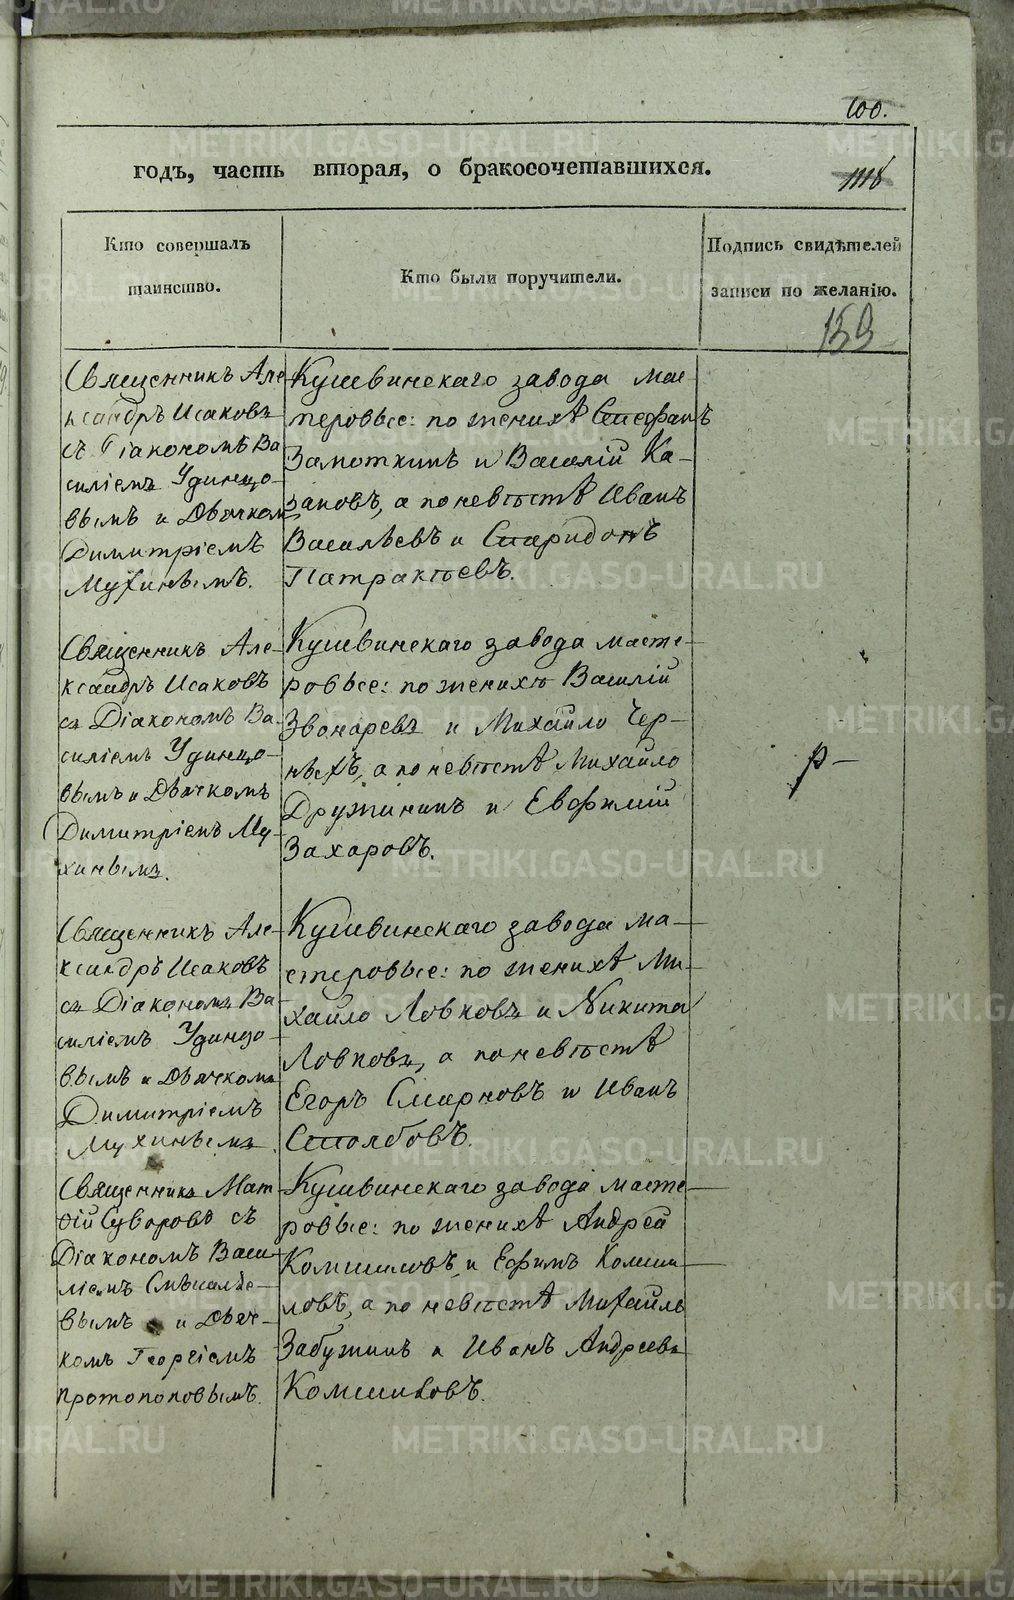 100.
годъ, часть вторая, о бракосочетавшихся.
Кто совершалъ
таинство.
Кто были поручители.
Подпись свидѣтелей
записи по желанію.
159
Священникъ Але
ксандръ Исаковъ
съ Діакономъ Ва
силіемъ Удинцо-
вымъ и Дьячкомъ
Димитріемъ
Мухинымъ.
Кушвинскаго завода мас-
теровые: по женихѣ Стефанъ
Замоткинъ и Василій Ка-
заковъ, а по невѣстѣ Иванъ
Васильевъ и Спиридонъ
Патракѣевъ.
Священникъ Але-
ксандръ Исаковъ
съ Діакономъ Ва-
силіемъ Удинцо-
вымъ и Дьячкомъ
Димитріемъ Му-
хинымъ.
Кушвинскаго завода масте-
ровые: по женихѣ Василій
Звонаревъ и Михайло Чер-
ныхъ, а по невѣстѣ Михайло
Дружининъ и Евфимій
Захаровъ.
р-
Священникъ Але-
ксандръ Исаковъ
съ Діакономъ Ва-
силіемъ Удинцо-
вымъ и Дьячкомъ
Димитріемъ
Мухинымъ.
Кушвинскаго завода ма-
стеровые: по женихѣ Ми-
хайло Ловковъ и Никита
Ловковъ, а по невѣстѣ
Егоръ Смирновъ и Иванъ
Столбовъ.
Священникъ Мат
ѳій Суворовъ съ
Діакономъ Васи-
ліемъ Смышляе-
вымъ и Дьяч-
комъ Георгіемъ
Протопоповымъ.
Кушвинскаго завода масте-
ровые: по женихѣ Андрей
Комшиловъ и Ефимъ Комши-
ловъ, а по невѣстѣ Михайло
Забужинъ и Иванъ Андреевъ
Комшиловъ.
METRIKI.GASO-URAL.RU